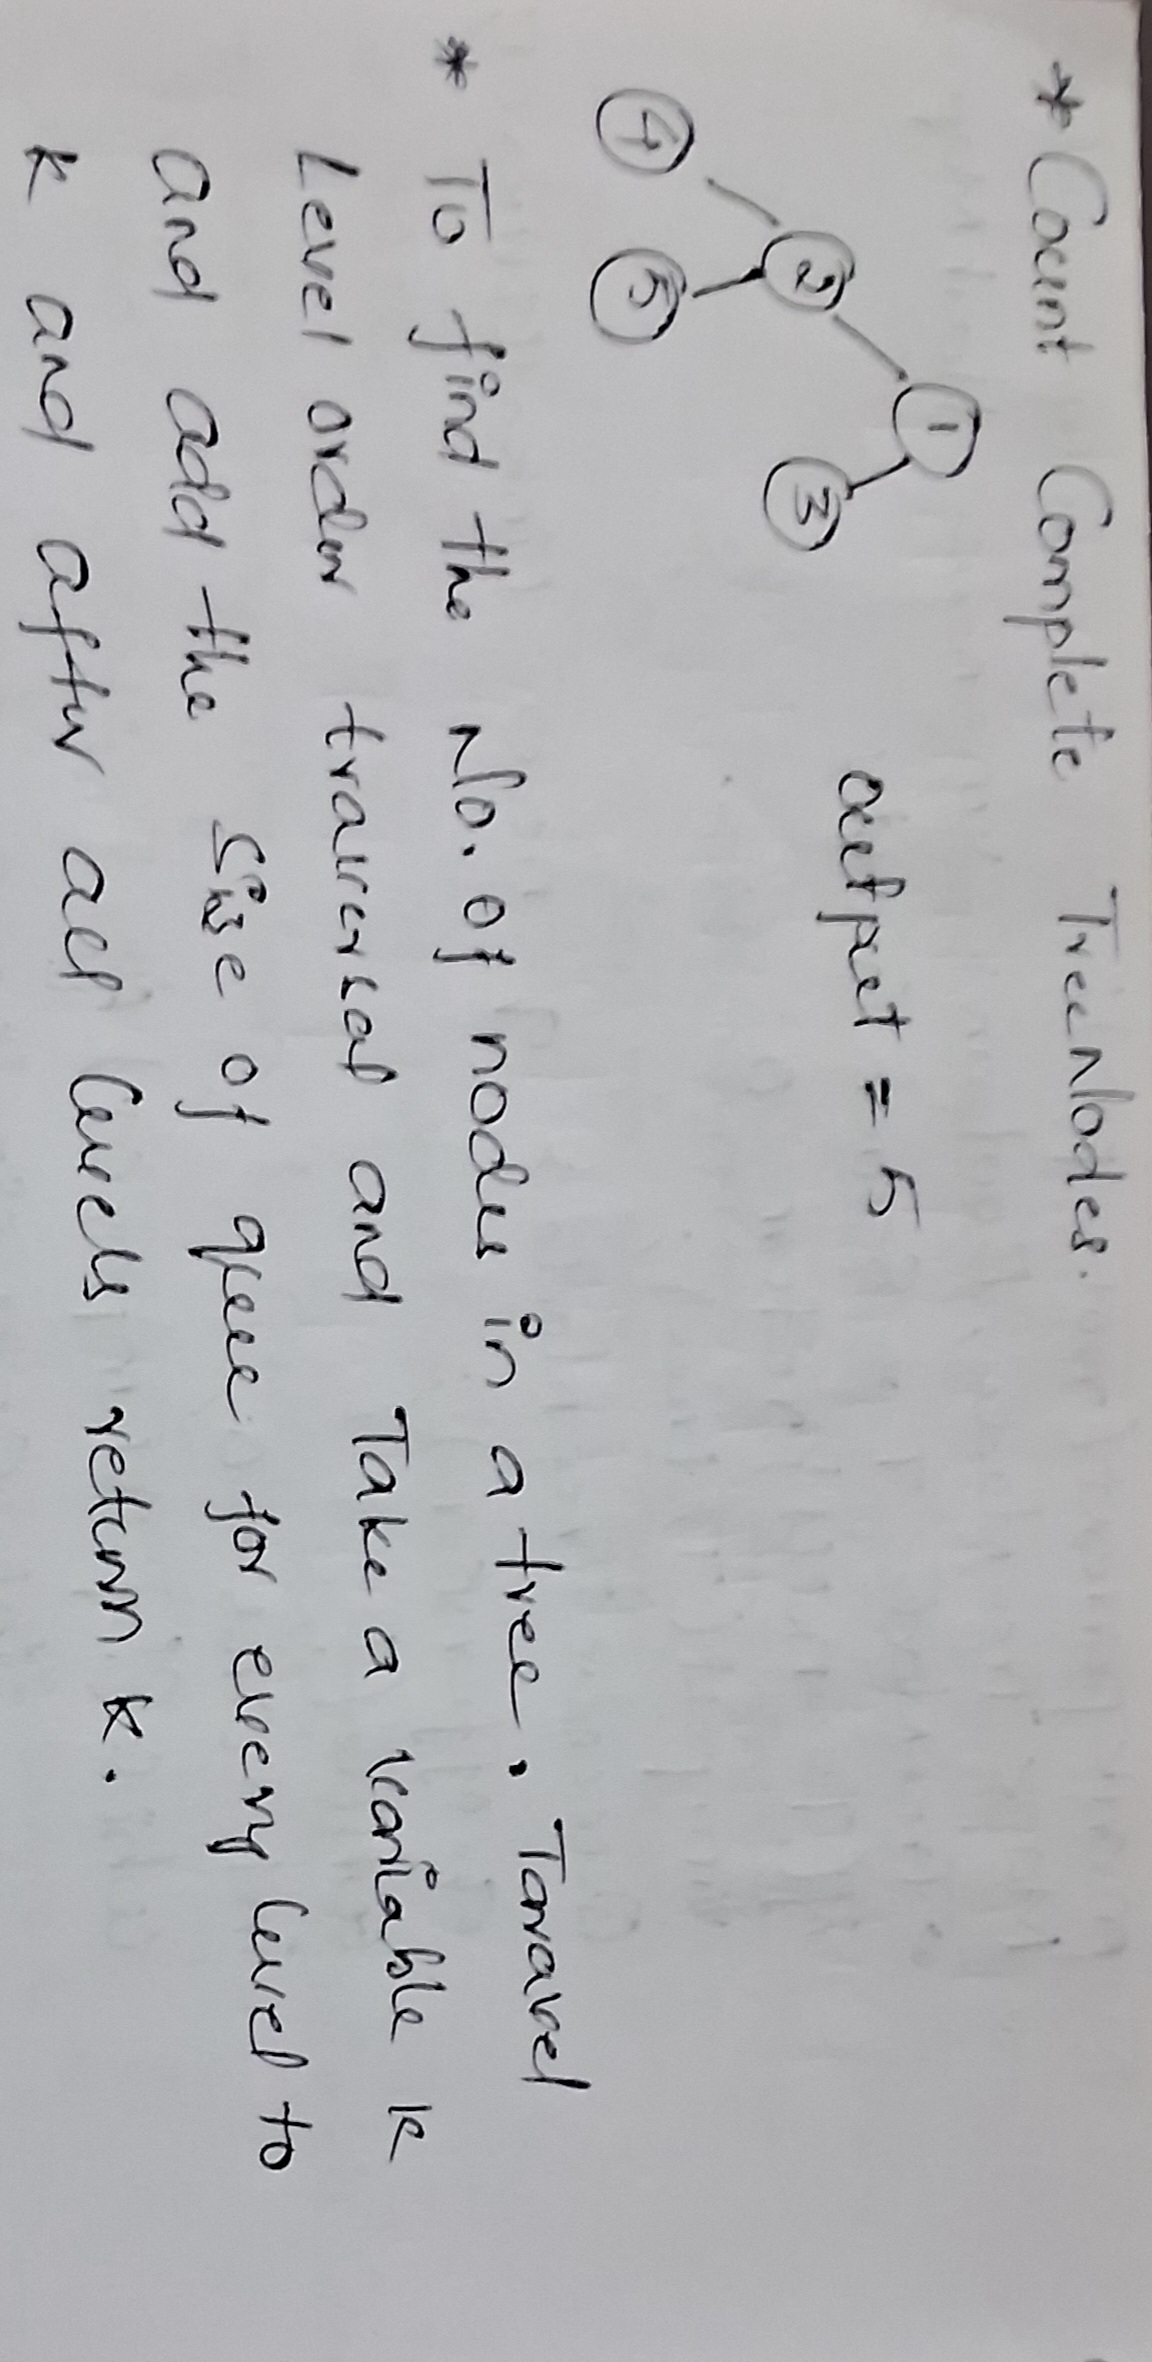 * Count Complete TreeNodes.
1
2
3
4
5
output = 5
* To find the No. of nodes in a tree. Taravel
Level order traversal and Take a variable k
and add the size of queue for every level to
k and after all levels return k.